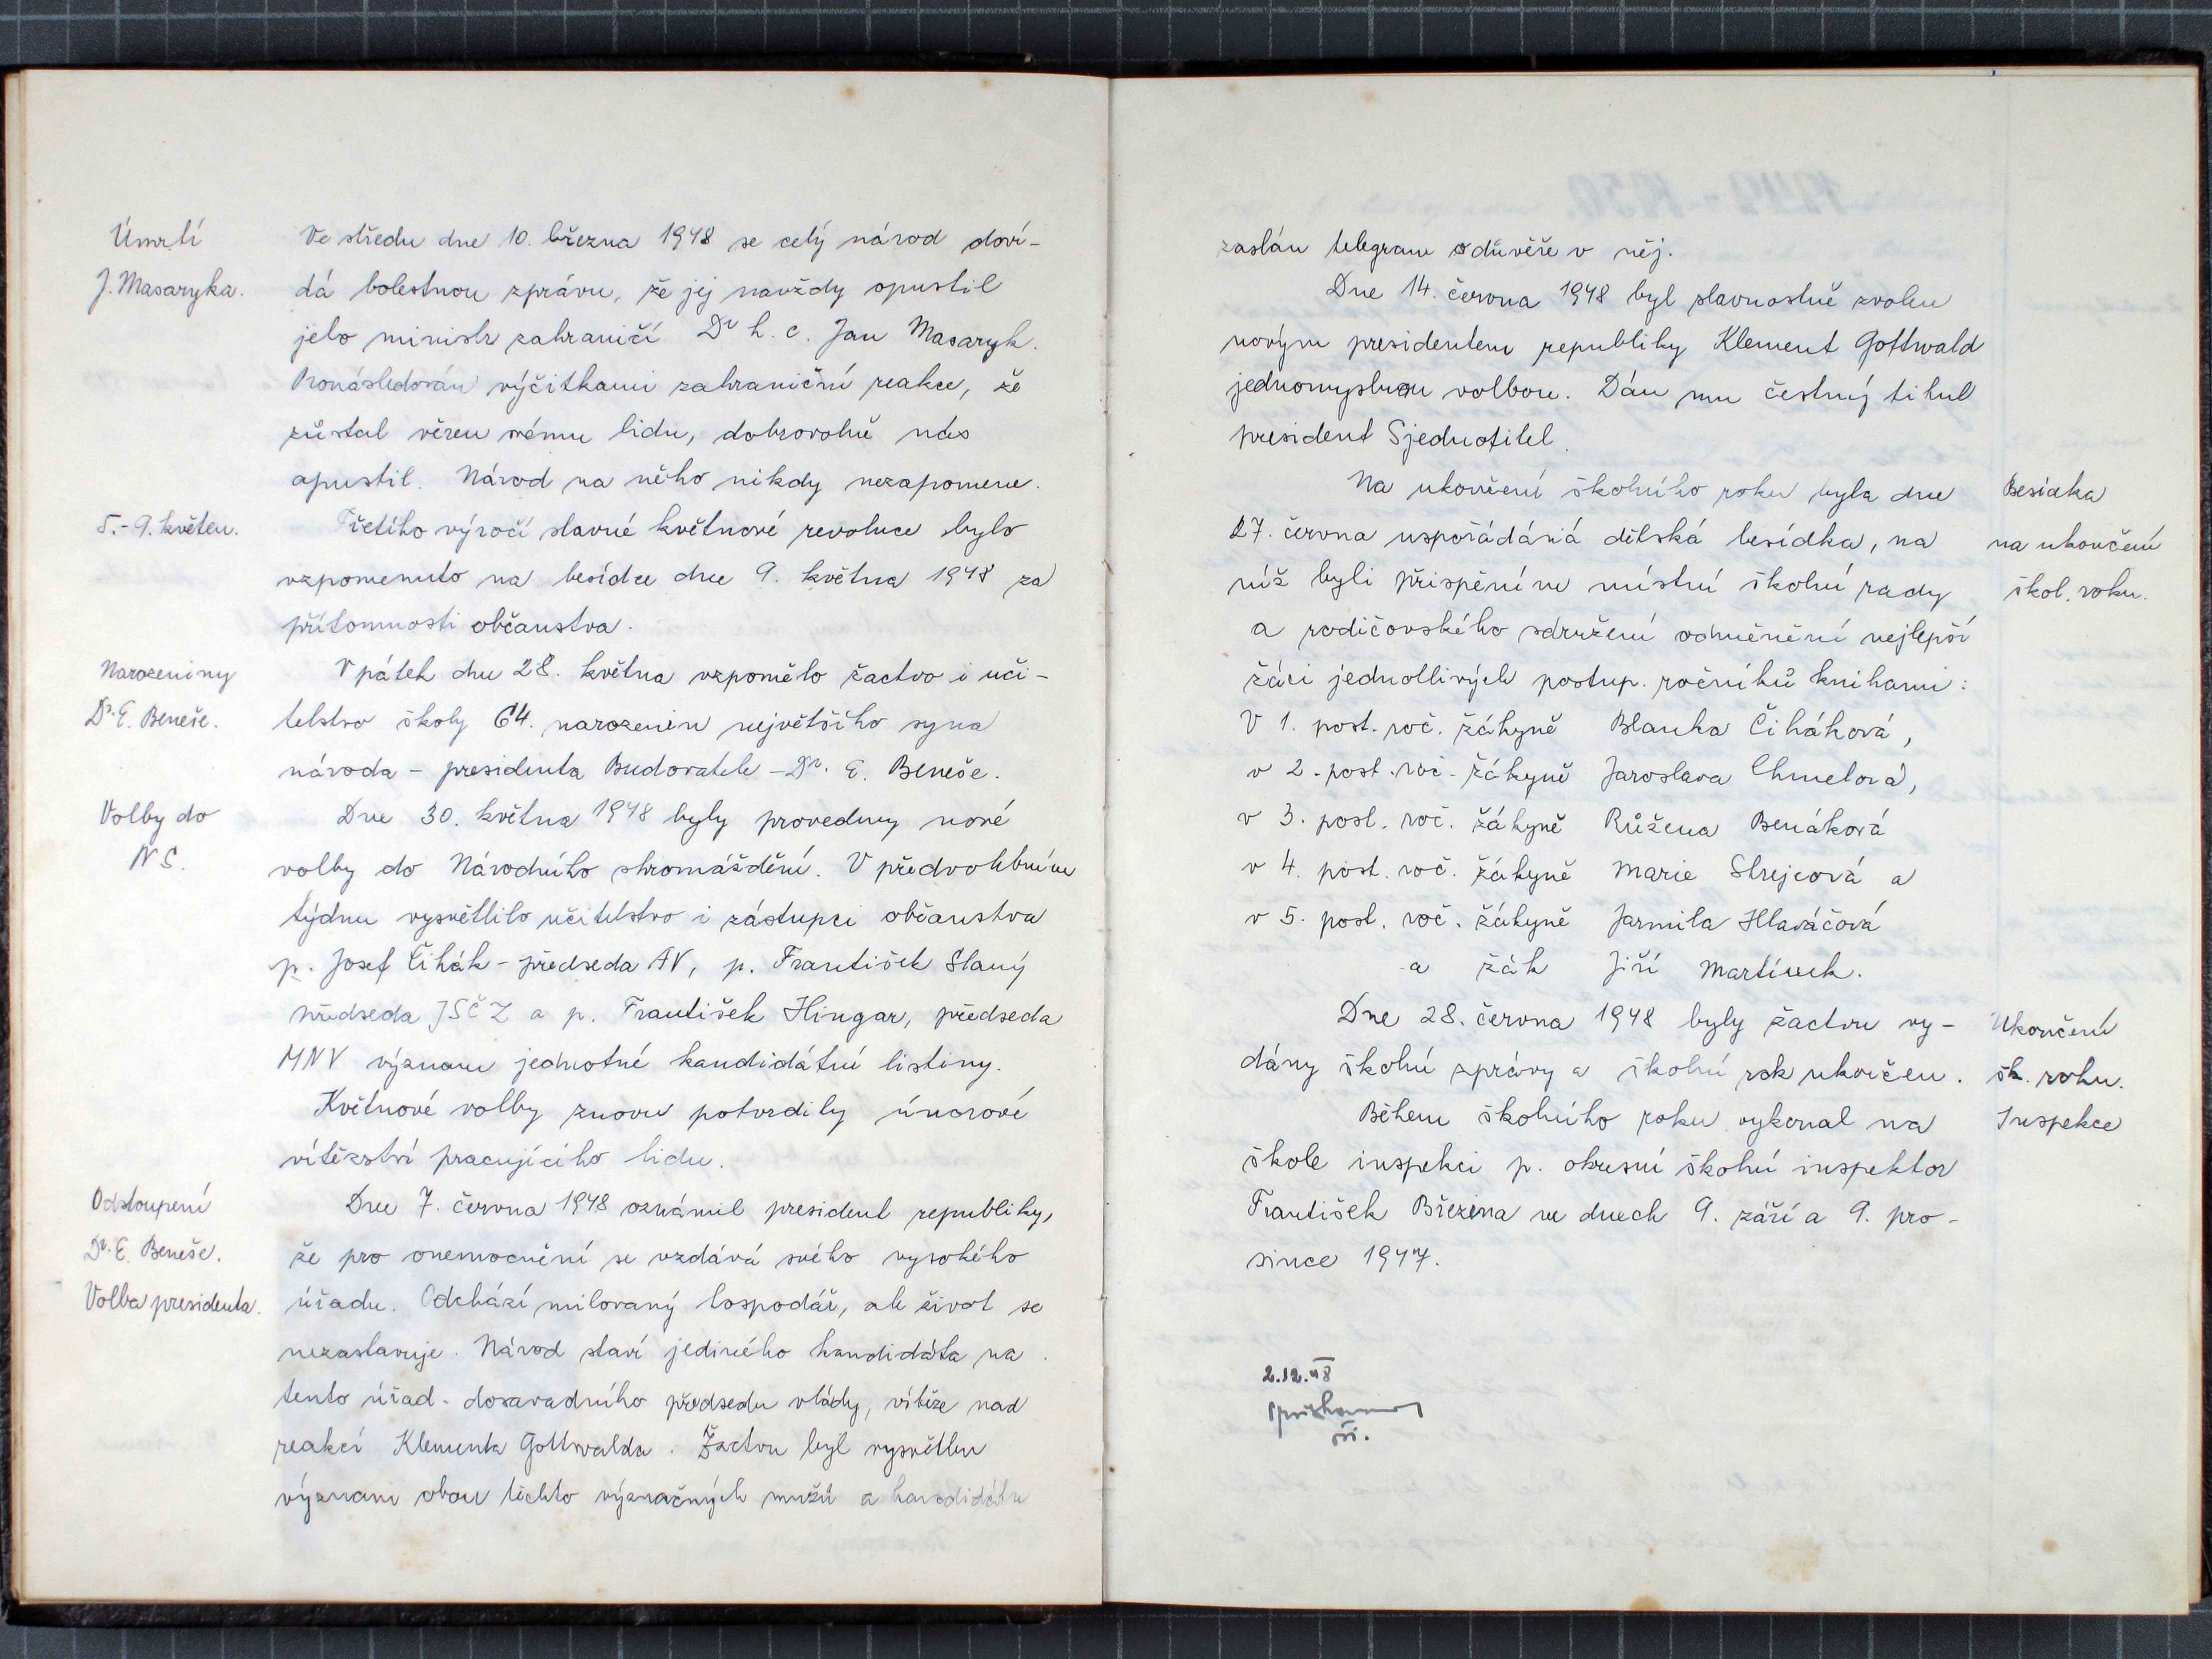 Úmrtí
J. Masaryka.
Ve středu dne 10. března 1948 se celý národ doví-
dá bolestnou zprávu, že jej navždy opustil
jeho ministr zahraničí Dr h. c. Jan Masaryk.
Pronásledován výčitkami zahraniční reakce, že
zůstal věren svému lidu, dobrovolně nás
opustil. Národ na něho nikdy nezapomene.
5.-9. květen.
Třetího výročí slavné květnové revoluce bylo
vzpomenuto na besídce dne 9. května 1948 za
přítomnosti občanstva.
Narozeniny
Dr. E. Beneše.
V pátek dne 28. května vzpomělo žactvo i uči-
telstvo školy 64. narozenin největšího syna
národa - presidenta Budovatele - Dr. E. Beneše.
Volby do
NS.
Dne 30. května 1948 byly provedeny nové
volby do Národního shromáždění. V předvolebním
týdnu vysvětlilo učitelstvo i zástupci občanstva
p. Josef Čihák - předseda AV, p. František Slaný
předseda JSČZ a p. František Hingar, předseda
MNV význam jednotné kandidátní listiny.
Květnové volby znovu potvrdily únorové
vítězství pracujícího lidu.
Odstoupení
Dr. E. Beneše.
Volba presidenta.
Dne 7. června 1948 oznámil president republiky,
že pro onemocnění se vzdává svého vysokého
úřadu. Odchází milovaný hospodář, ale život se
nezastavuje. Národ staví jediného kandidáta na
tento úřad - dosavadního předsedu vlády, vítěze nad
reakcí Klementa Gottwalda. Žactvu byl vysvětlen
význam obou těchto význačných mužů a kandidátu
zaslán telegram o důvěře v něj.
Dne 14. června 1948 byl slavnostně zvolen
novým presidentem republiky Klement Gottwald
jednomyslnou volbou. Dán mu čestný titul
president Sjednotitel.
Besídka
na ukončení
škol. roku.
Na ukončení školního roku byla dne
27. června uspořádáná dětská besídka, na
níž byli přispěním místní školní rady
a rodičovského sdružení odměnění nejlepší
žáci jednotlivých postup. ročníků knihami:
V 1. post. roč. žákyně Blanka Čiháková,
v 2. post. roč. žákyně Jaroslava Chmelová,
v 3. post. roč. žákyně Růžena Benáková
v 4. post. roč. žákyně Marie Strejcová a
v 5. post. roč. žákyně Jarmila Hlaváčová
a žák Jiří Martínek.
Ukončení
šk. roku.
Dne 28. června 1948 byly žactvu vy-
dány školní zprávy a školní rok ukončen.
Inspekce
Během školního roku vykonal na
škole inspekci p. okresní školní inspektor
František Březina ve dnech 9. září a 9. pro-
since 1947.
2.12.48